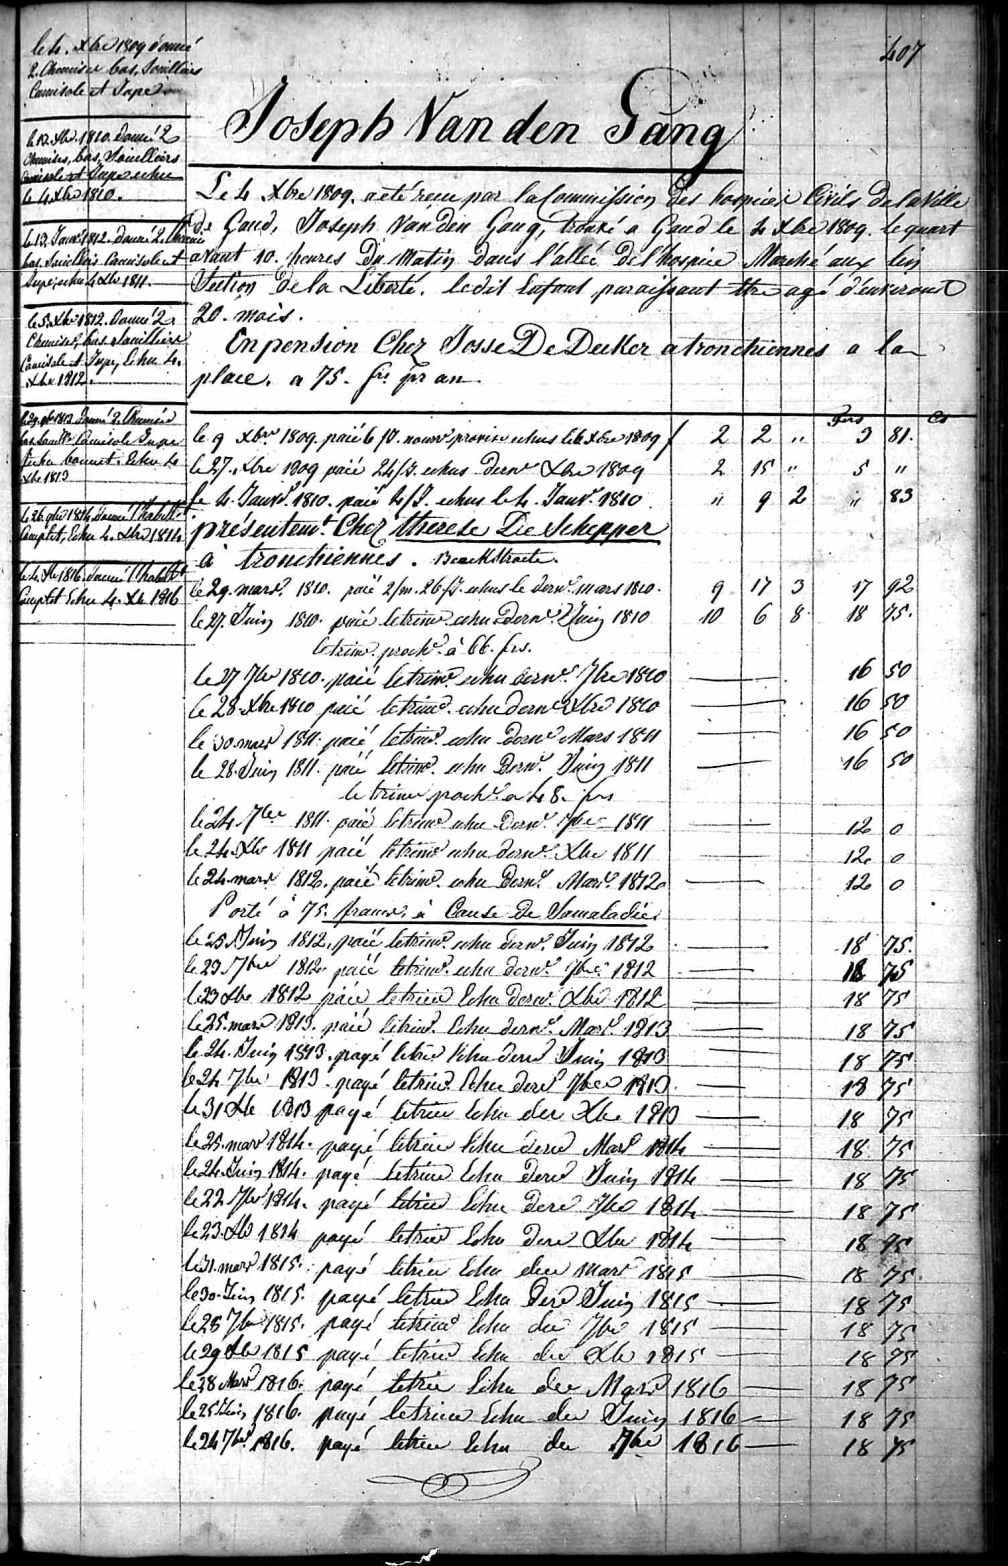 407
le 4. Xbre 1809 donné
2. Chemises bas, Souilliers
Camisole et Jupe
le 12. Xbre. 1810. donné 2
Chemises, bas, Souilliers
Camisole et Jupe echu
le 4 Xbre 1810.
le 13. Janvr 1812. donné 2. Chemises
bas, Souilliers Camisole et
Jupe, echu 4 Xbre 1811.
le 5. Xbre 1812. donné 2.
Chemises, bas, Souilliers
Camisole et Jupe, Echu 4.
Xbre 1812.
le 29. 9bre 1813 donné 2. Chemises
bas Soull.rs Camisole Jupe
fichu bonnet. Echu 4
Xbre 1813
le 26. 9bre 1814. donné l'habillt
Complet, Echu 4. Xbre 1814
le 4. Xbre 1816. donné l'habillt
Complet Echu 4. Xbr 1816
Joseph Van den Gang
Le 4 Xbre 1809. a été reçu par la Commission des hospices Civils de la Ville
de Gand, Joseph Van den Gang, trouvé a Gand le 4 Xbre 1809. le quart
avant 10. heures Du Matin dans l'allée de l'hospice Marché aux lin
Section de la Liberté. le dit Enfant paraissant être agé d'environt
20. mois.
En pension Chez Josse De Decker a tronchiennes a la
place. a 75. frs pr an
frs Cs
le 9 Xbre 1809. paié 6 js. nourr provise echus le 6 Xbre 1809 2 2 " 3 81.
le 27. Xbre 1809 paié 24 js. echus dernr Xbre 1809 2 15 " 5 "
le 4. Janvr. 1810. paié 4 js. echus le 4. Janvr. 1810 " 9 2 " 83
présentemt. Chez therese De Schepper
à tronchiennes. Beeckstraete.
le 29. mars. 1810. paié 2/m. 26 js. echus le dernr. mars 1810. 9 17 3 17 92
le 27. Juin 1810. paié le trimr echu Dernr Juin 1810 10 6 8 18 75.
le trim. prochr. à 66. frs.
le 27 7bre 1810. paié le trimr. echu dernr. 7bre 1810 16 50
le 28. Xbre 1810 paié le trimr. echu dernr Xbre 1810 16 50
le 30 mars 1811. paié le trimr. echu dernr Mars 1811 16 50
le 28. Juin 1811. paié le trimr. echu Dernr. Juin 1811 16 50
le trimr prochr. a 48. frs
le 24. 7bre 1811. paié le trimr echu Dernr. 7bre 1811 12 0
le 24. Xbre 1811 paié le trimr echu dernr. Xbre 1811 12 0
le 24. mars 1812. paié le trimr. echu Dernr. Mars. 1812 12 0
Porté à 75. francs. à Cause de Sa maladie.
le 25 Juin 1812. paié le trimr. echu dernr. Juin 1812 18 75.
le 23 7bre 1812. paié le trimr. echu dernr. 7bre 1812 18 75
le 23 Xbre 1812 paié le trimr Echu dernr. Xbre 1812 18 75
le 25. mars 1813. paié le trimr. Echu dernr. Mars. 1813 18 75
le 24. Juin 1813. payé le trim Echu derr Juin 1813 18 75
le 24 7bre 1813. payé le trimr Echu derr 7bre 1813. 18 75
le 31 Xbre 1813 payé le trim Echu der Xbre 1813 18 75
le 25. mars 1814. payé le trim Echu derr Mars 1814 18 75
le 24. Juin 1814. payé le trim Echu derr Juin 1814 18 75
le 22 7bre 1814. payé le trim Echu derr 7bre 1814 18 75
le 23. Xbre 1814 payé le trim Echu derr Xbre 1814 18 75
le 31. mars 1815. payé le trim Echu der mars 1815 18 75
le 30. Juin 1815. payé le trim Echu derr Juin 1815 18 75
le 28 7bre 1815. payé le trimr Echu der 7bre 1815 18 75
le 29 Xbre 1815 payé le trim Echu der Xbre 1815 18 75
le 28 Mars 1816. payé le trim Echu der Mars 1816 18 75
le 25 Juin 1816. payé le trim Echu der Juin 1816 18 75
le 24 7bre 1816. payé le trim Echu der 7bre 1816 18 75